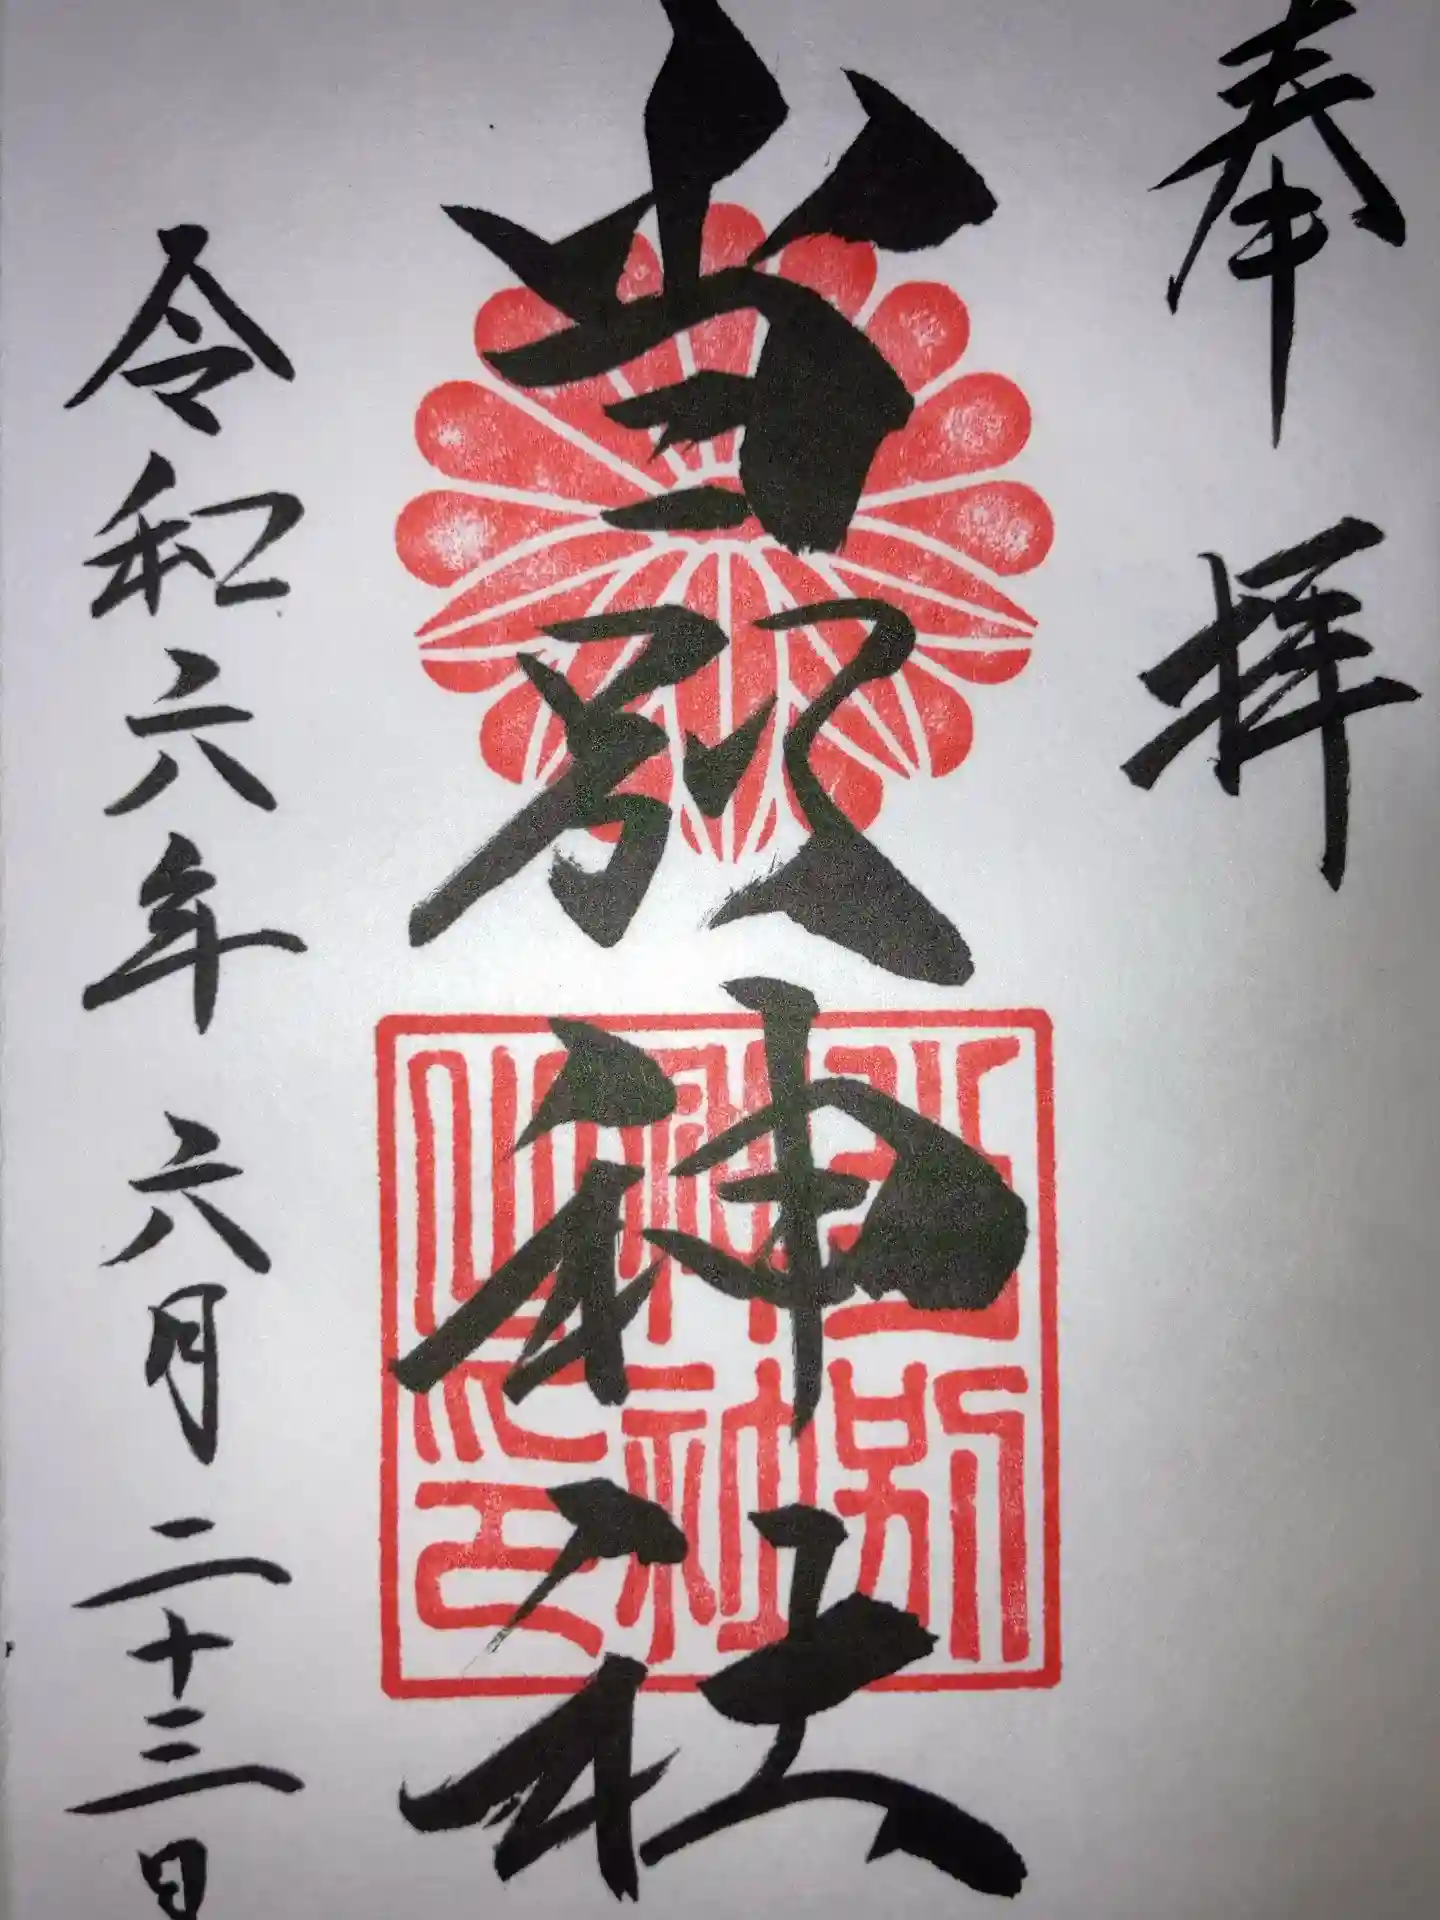 奉拝
当別神社
当別
神社
之印
令和六年六月二十三日